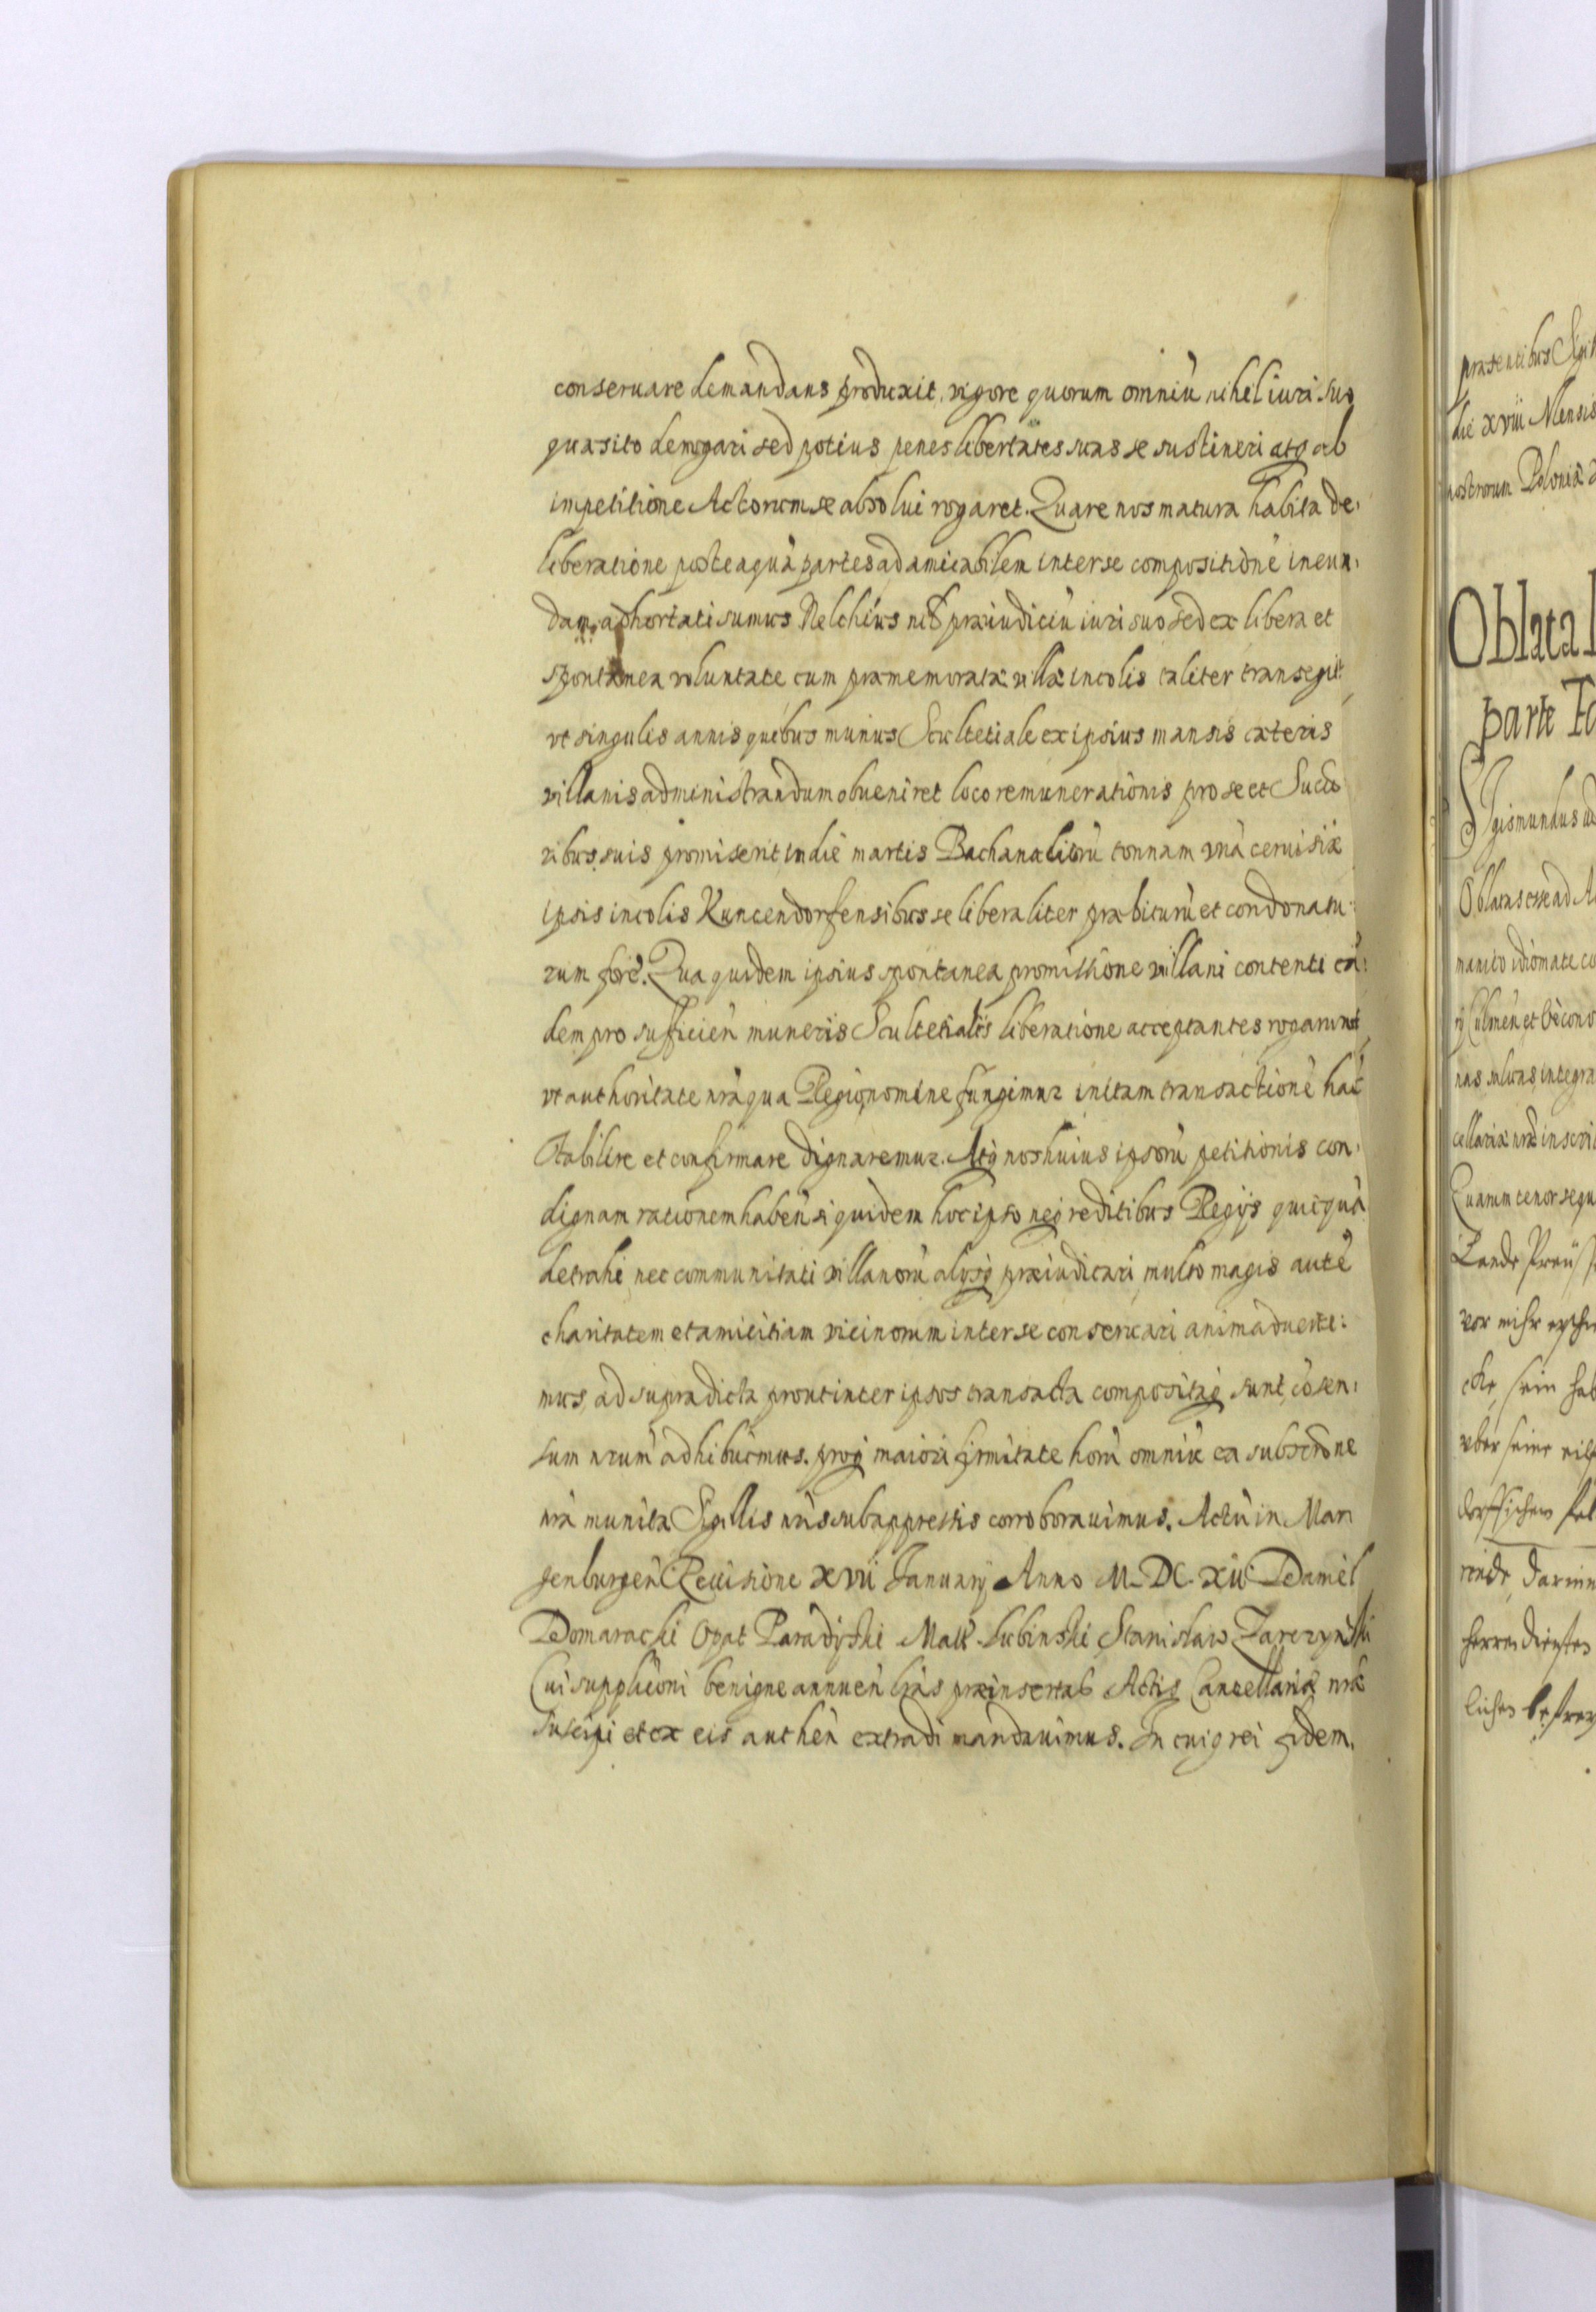 conseruare demandans produxit, vigore quorum omniū nihil iuri suo
quæsito derogari sed potius penes libertates suas se sustineri atq3 ab
impetitione Actorum se absolui rogaret. Quare nos matura habita de:
liberatione posteaquā partes ad amicabilem inter se compositionē ineun:
dam adhortati sumus Nelchius præiudiciū iuri suo sed ex libera et
spontanea voluntate cum præmemoratæ villæ incolis taliter transegit
vt singulis annis quibus munus Scultetiale ex ipsius mansis cæteris
villanis administrandum obueniret loco remunerationis pro se et Succō
ribus suis promiserit, in die martis Bachanaliorū tonnam vnā ceruisiæ
ipsis incolis Kuncendorfensibus se liberaliter præbiturū et condonatu:
rum forē. Qua quidem ipsius spontanea promissione villani contenti eā:
dem pro sufficieñ muneris Scultetialis liberatione acceptantes rogarunt
vt authoritate nrā qua Regio nomine fungimur initam transactionē hāc
stabilire et confirmare dignaremur. Atq3 nos huius ipsorū petitionis con:
dignam rationem habeñ si quidem hoc ipso neq3 reditibus Regijs quicquā
detrahi, nec communitati villanorū alijsq3 præiudicari multo magis autē
charitatem et amicitiam vicinorum inter se conseruari animaduerte:
mus, ad supradicta prout inter ipsos transacta compositaq3 sunt, cōsen:
sum nrūm adhibuimus. proq3 maiori firmitate horū omniū ea subscrōne
nrā munita Sigillis nrīs subappressis corroborauimus. Actū in Mari
genburgeñ Reuisione XVII January Anno M.DC.XII Daniel
Domaracki Opat Paradyski Matt. Lubinski Stanisław Zarczynski
Cui supplicōni benigne annueñ lrās præinsertas Actis Cancellariæ nræ
suscipi et ex eis autheñ extradi mandauimus. In cuiq3 rei fidem.
præsentibus Sigil
die xviii Mensis
nostrorum Poloniæ
Oblata
parte
Sigismundus
Oblatas esse ad
manico idiomate
Culmeñ et
nas saluas, integra
cellariæ nræ inscri
Quarum tenor sequ
Lande
vor mihr
sein
vber seine
herren diensten